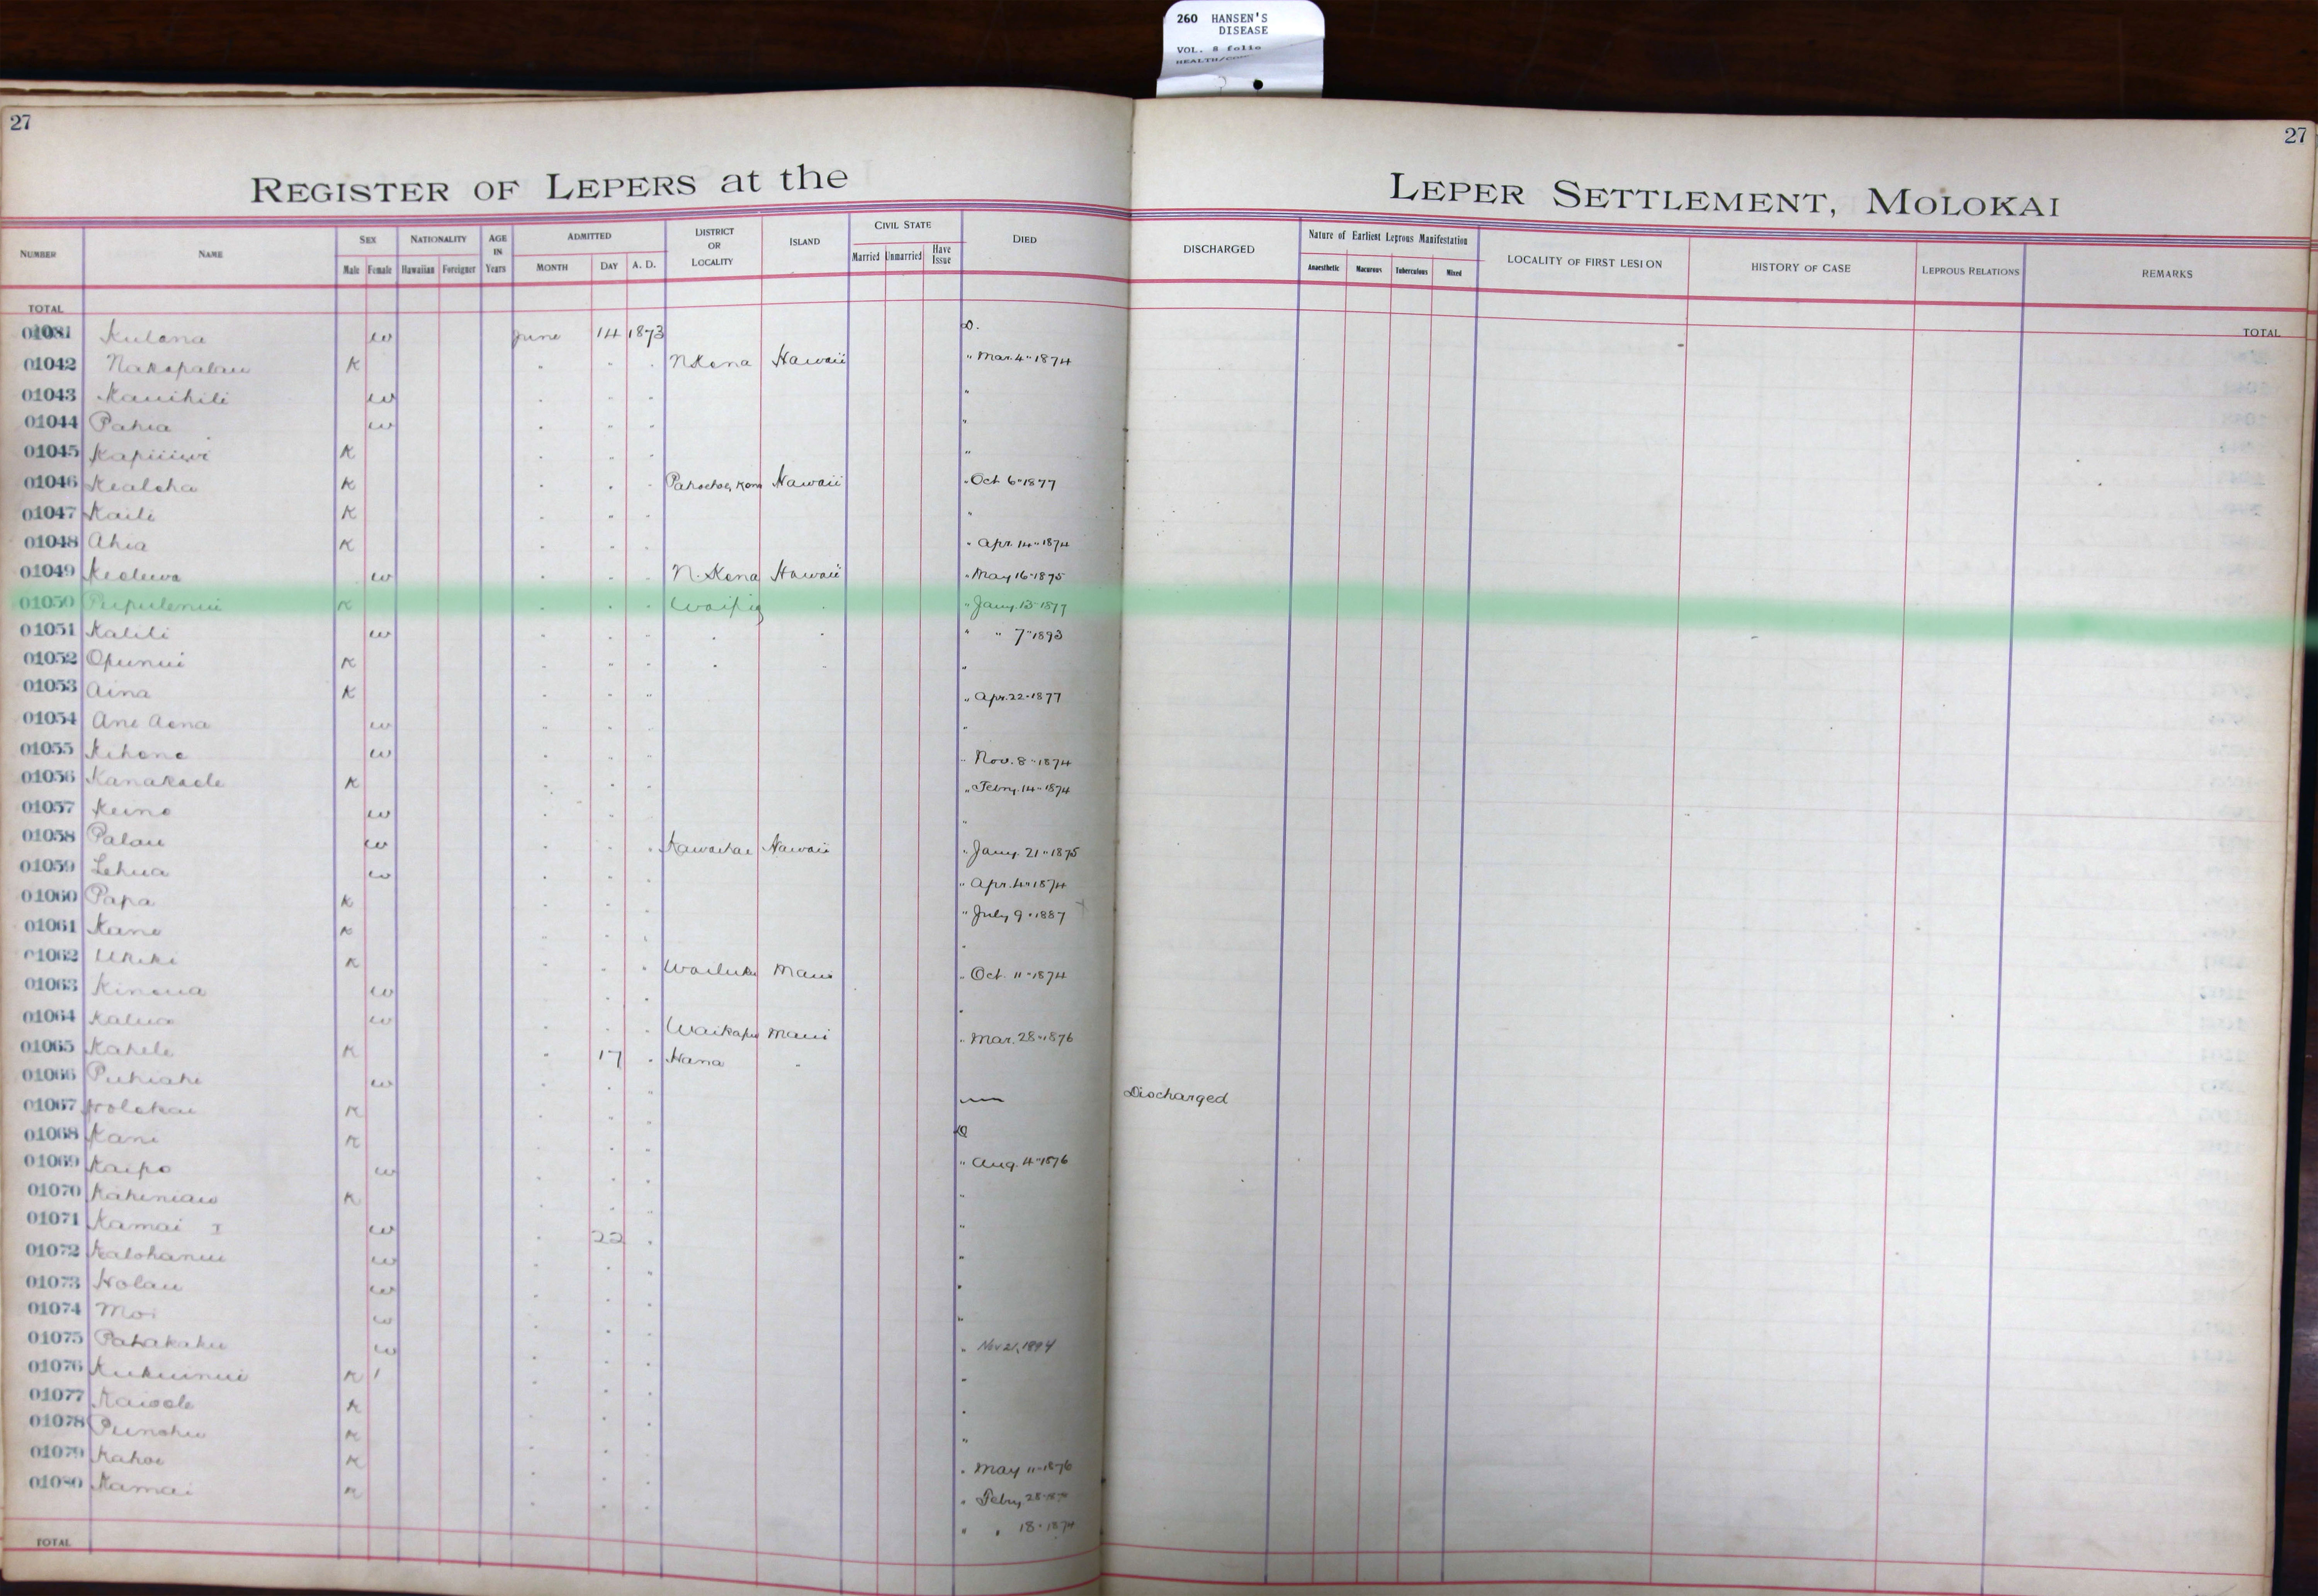 260 HANSEN'S
DISEASE
VOL. 8 folio
27
27
REGISTER OF LEPERS at the LEPER SETTLEMENT, MOLOKAI
NUMBER NAME SEX NATIONALITY AGE IN Years ADMITTED DISTRICT OR LOCALITY ISLAND CIVIL STATE DIED DISCHARGED Nature of Earliest Leprous Manifestation LOCALITY OF FIRST LESION HISTORY OF CASE LEPROUS RELATIONS REMARKS
Male Female Hawaiian Foreigner MONTH DAY A. D. Married Unmarried Have Issue Anaesthetic Macurous Tuberculous Mixed
TOTAL TOTAL
Kulana w June 14 1873 D.
01042 Nakopalau K " " " N Kona Hawaii " Mar. 4" 1874
01043 Kauihili w " " " "
01044 Pahia w " " " "
01045 K " " " "
01046 Kealoha K " " " Pahoehoe, Kona Hawaii " Oct 6" 1877
01047 Kaili K " " " "
01048 Ahia K " " " " Apr. 14" 1874
01049 w " " " N. Kona Hawaii " May 16" 1875
01050 Pupulenui K " " " Waipio " " Jany. 13" 1877
01051 Kalili w " " " " " " " 7" 1893
01052 Opunui K " " " " " "
01053 Aina K " " " " Apr. 22" 1877
01054 Ane Aona w " " " "
01055 Kihene w " " " " Nov. 8" 1874
01056 Kanakaole K " " " " Febry. 14" 1874
01057 Keino w " " " "
01058 Palau w " " " Kawaihae Hawaii " Jany. 21" 1875
01059 Lehua w " " " " Apr. 4" 1874
01060 Papa K " " " " July 9" 1887
01061 Kane K " " " "
01062 Ukiki K " " " Wailuku Maui " Oct. 11" 1874
01063 Kinoua w " " " "
01064 Kalua w " " " Waikapu Maui " Mar. 28" 1876
01065 Kahele K " 17 " Hana "
01066 Puhiahi w " " " — Discharged
01067 Holokai K " " " D
01068 Kani K " " " " Aug. 4" 1876
01069 Kaipo w " " " "
01070 Kaheniau K " " " "
01071 Kamai I w " 22 " "
01072 Kalohanui w " " " "
01073 Holau w " " " "
01074 Moi w " " "
01075 Pahakahu w " " " " Nov 21, 1894
01076 Kukuinui K " " " "
01077 Kaiwole K " " " "
01078 Punohu K " " " "
01079 Kahoe K " " " " May 11" 1876
01080 Kamai K " " " " Febry 28"
" " 18" 1874
TOTAL